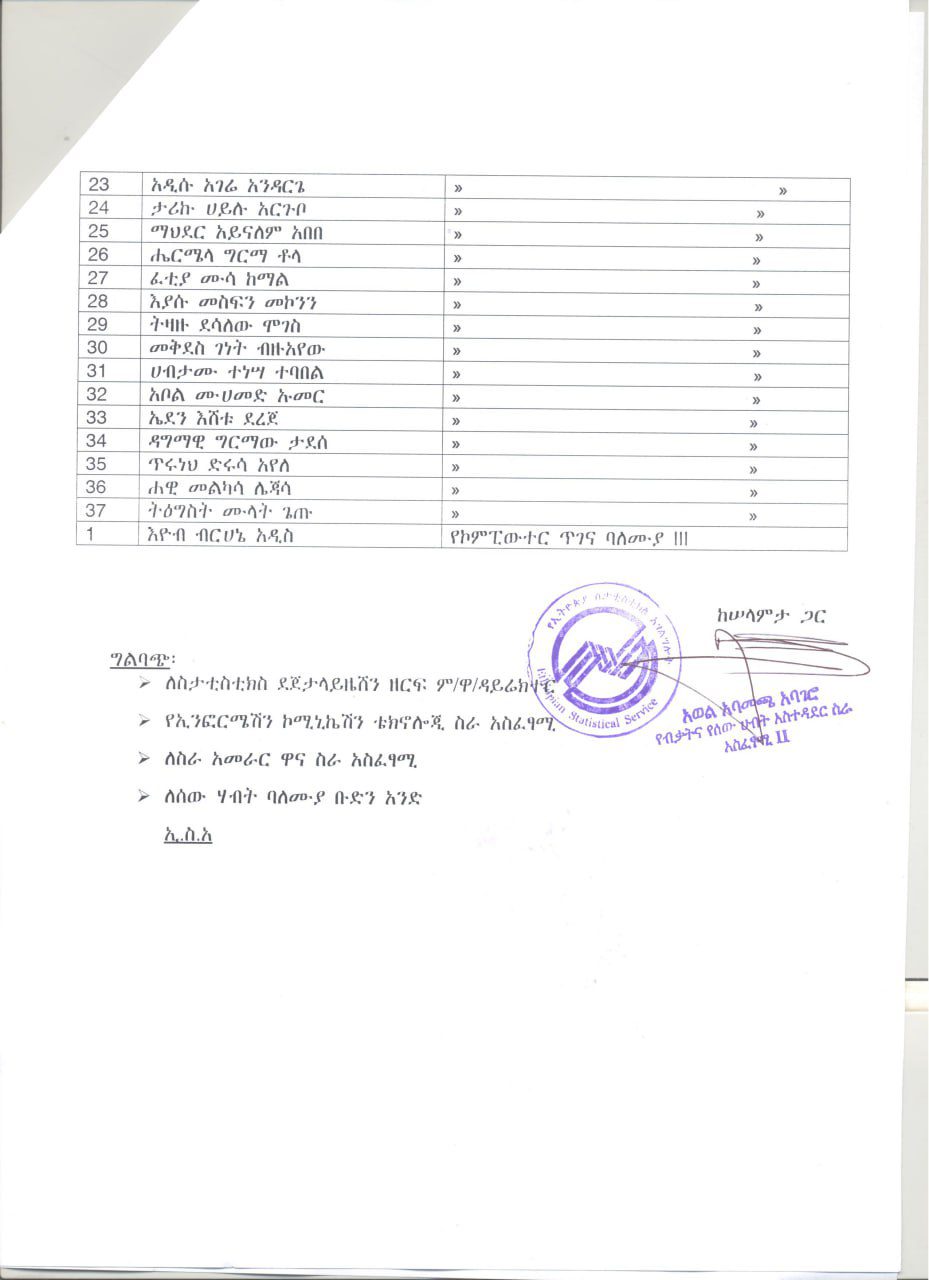 23 አዲሱ አገሬ አንዳርጌ » »
24 ታሪኩ ሀይሉ አርጉቦ » »
25 ማህደር አይናለም አበበ » »
26 ሔርሜላ ግርማ ቶላ » »
27 ፈቲያ ሙሳ ከማል » »
28 እያሱ መስፍን መኮንን » »
29 ትዛዙ ደሳለው ሞገስ » »
30 መቅደስ ገነት ብዙአየው » »
31 ሀብታሙ ተነሣ ተባበል » »
32 አቦል ሙሀመድ ኡመር » »
33 ኤደን እሸቱ ደረጀ » »
34 ዳግማዊ ግርማው ታደሰ » »
35 ጥሩነህ ድሩሳ አየለ » »
36 ሐዊ መልካሳ ሌጃሳ » »
37 ትዕግስት ሙላት ጌጡ » »
1 እዮብ ብርሀኔ አዲስ የኮምፒውተር ጥገና ባለሙያ III
ከሠላምታ ጋር
የኢትዮጵያ ስታቲስቲክስ አገልግሎት
Ethiopian Statistical Service
አወል አባመጫ አባገሮ
የብቃትና የሰው ሀብት አስተዳደር ስራ
አስፈፃሚ II
ግልባጭ፡
➢ ለስታቲስቲክስ ደጀታላይዜሽን ዘርፍ ም/ዋ/ዳይሬክተር
➢ የኢንፎርሜሽን ኮሚኒኬሽን ቴክኖሎጂ ስራ አስፈፃሚ
➢ ለስራ አመራር ዋና ስራ አስፈፃሚ
➢ ለሰው ሃብት ባለሙያ ቡድን አንድ
ኢ.ስ.አ